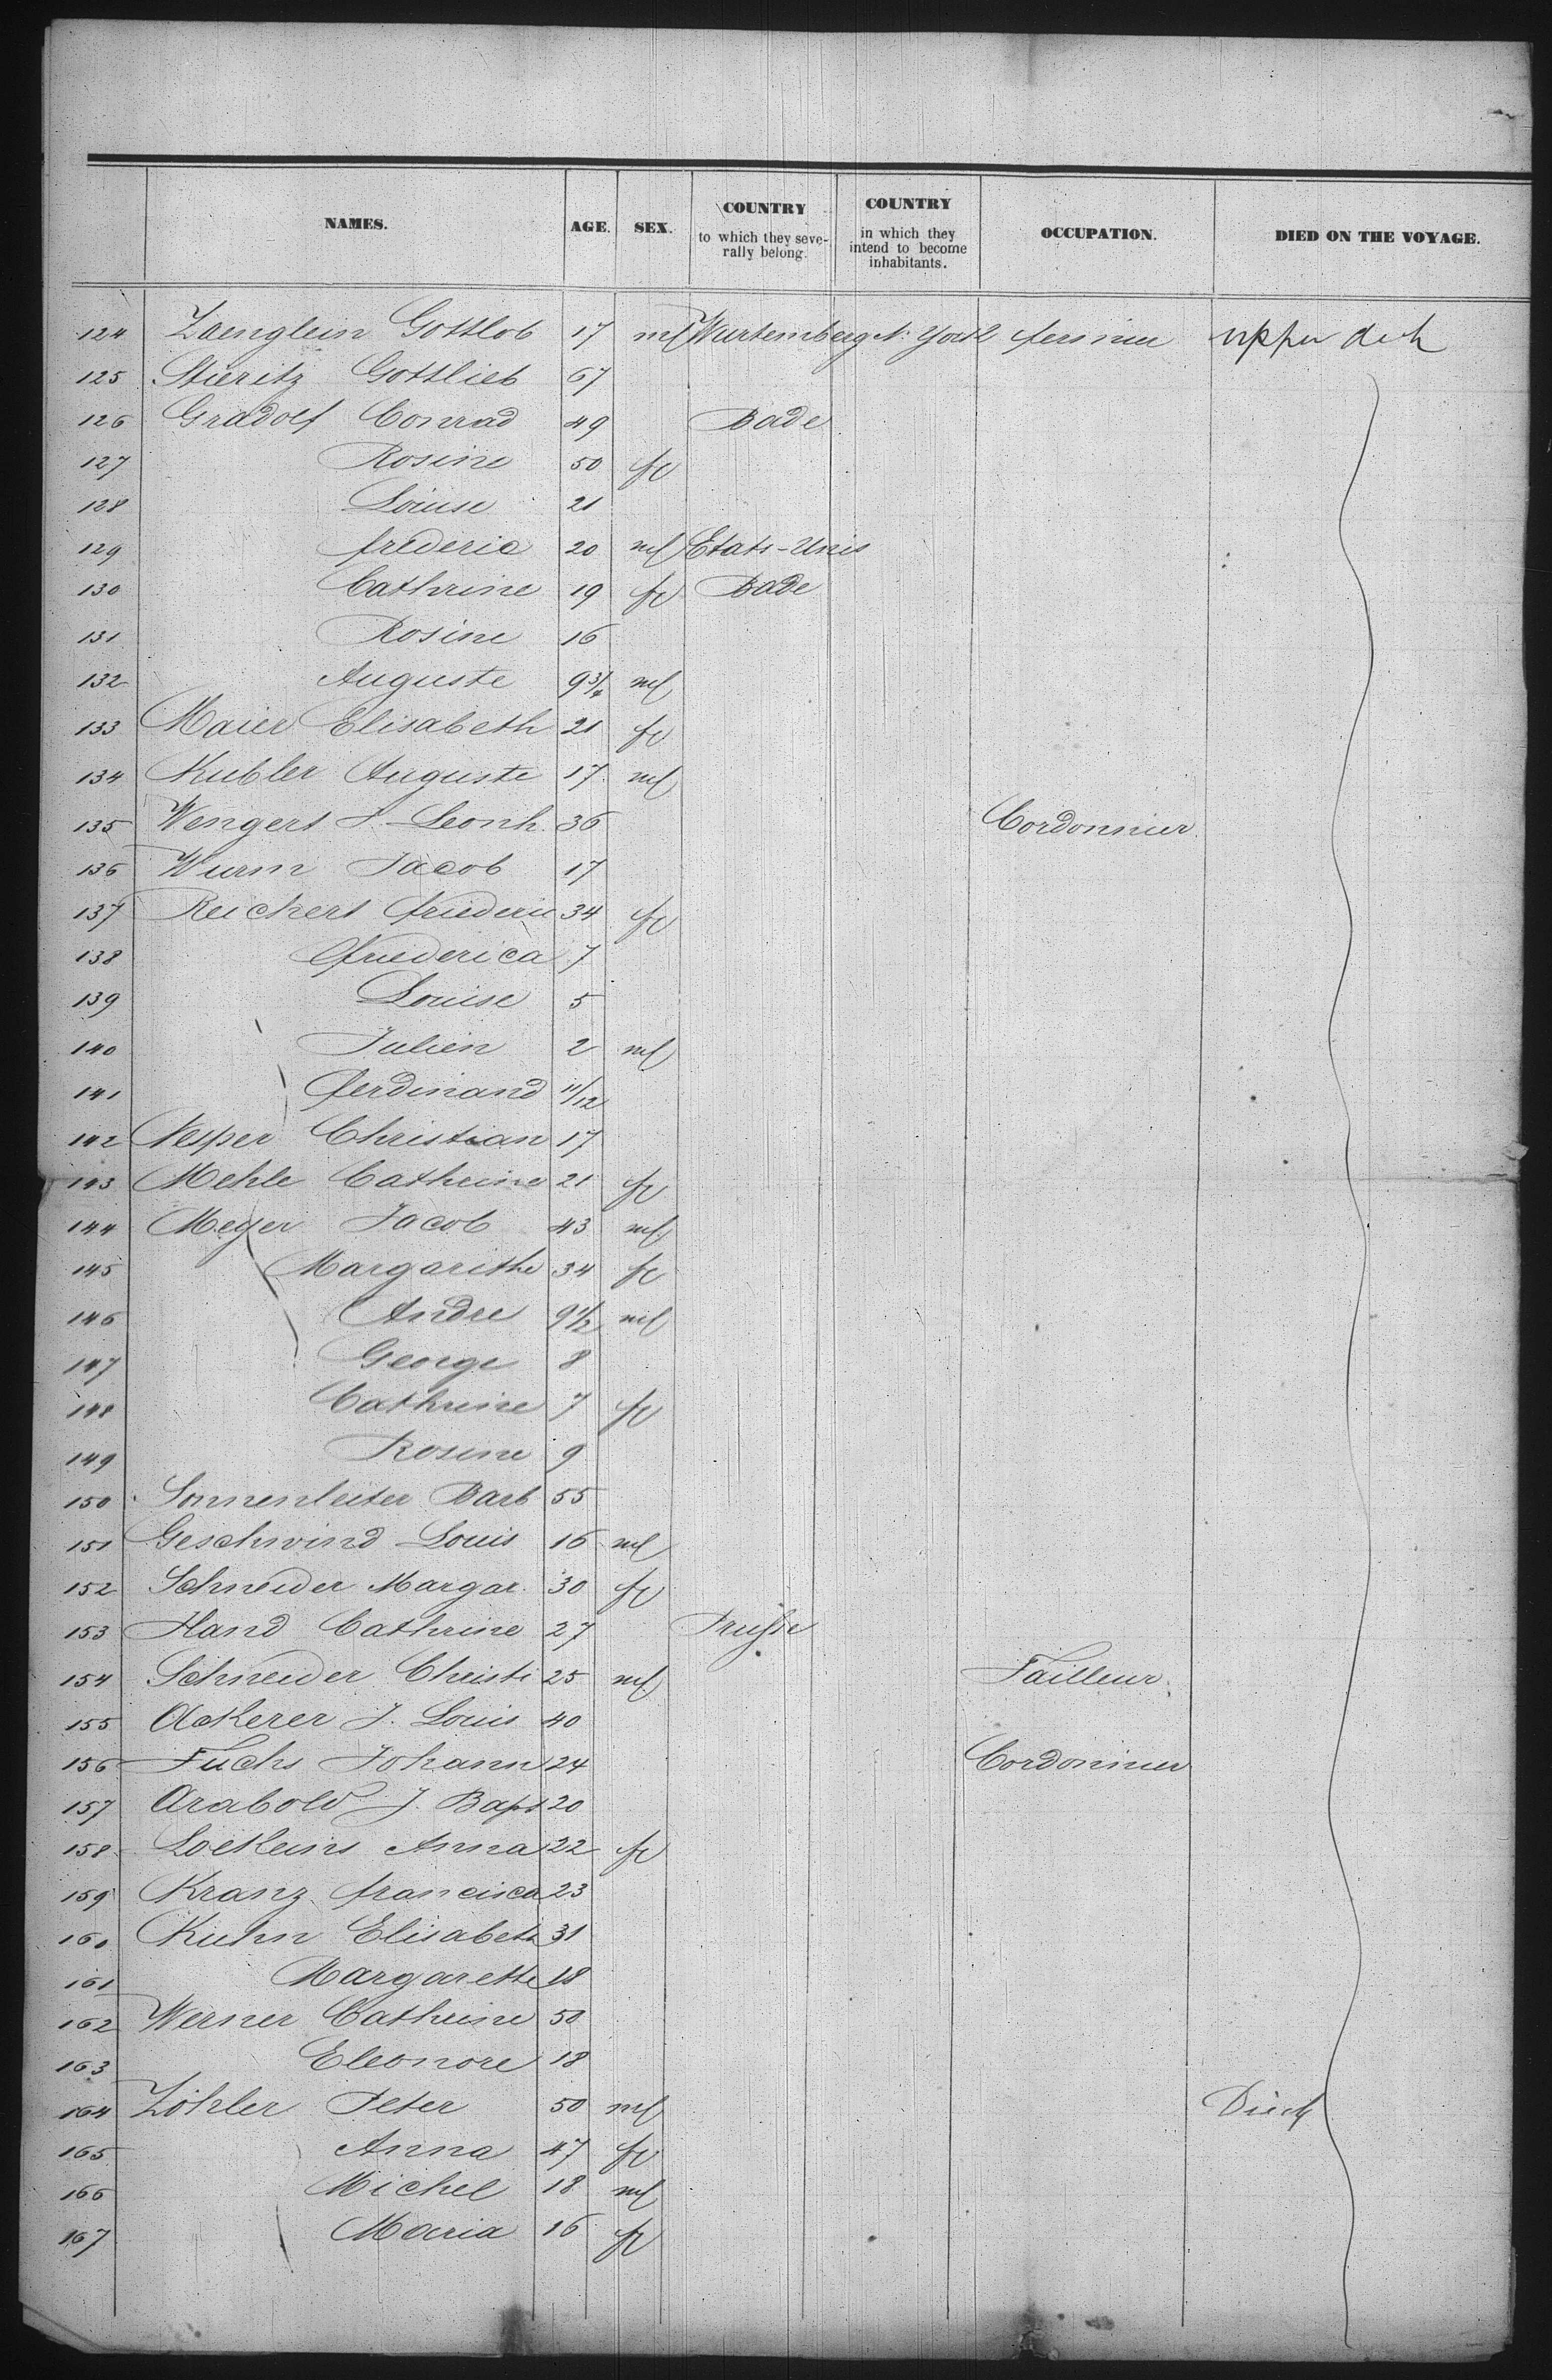 NAMES. AGE. SEX. COUNTRY to which they seve- rally belong. COUNTRY in which they intend to become inhabitants. OCCUPATION. DIED ON THE VOYAGE.
124 Zaenglein Gottlob 17 ml Wurtemberg N. York upper deck
125 Stieritz Gottlieb 67
126 Gradolf Conrad 49 Bade
127 Rosine 50 fe
128 Louise 21
129 frederic 20 ml Etats-Unis
130 Cathrine 19 fe Bade
131 Rosine 16
132 Auguste 9 3/4 ml
133 Maier Elisabeth 21 fe
134 Kubler Auguste 17 ml
135 Wengert J. Leonh. 36 Cordonnier
136 Wurm Jacob 17
137 Reichert friederic 34 fe
138 friederica 7
139 Louise 5
140 Julien 2 ml
141 ferdinand 11/12
142 Vesper Christian 17
143 Mehle Catherine 21 fe
144 Meyer Jacob 43 ml
145 Margarethe 34 fe
146 Andre 9 1/2 ml
147 George 8
148 Cathrine 7 fe
149 Rosine 9
150 Sonnenleiter Barb 55
151 Geschwind Louis 16 ml
152 Schneider Margar. 30 fe
153 Hand Cathrine 27 Prusse
154 Schneider Christi 25 ml Tailleur
155 Ackerer J. Louis 40
156 Fuchs Johann 24 Cordonnier
157 Arabold J. Bapt 20
158 Anna 22 fe
159 Kranz francisca 23
160 Kuhn Elisabeth 31
161 Margarethe 18
162 Werner Catherine 50
163 Eleonore 18
164 Zöhler Peter 50 ml
165 Anna 47 fe
166 Michel 18 ml
167 Maria 16 fe